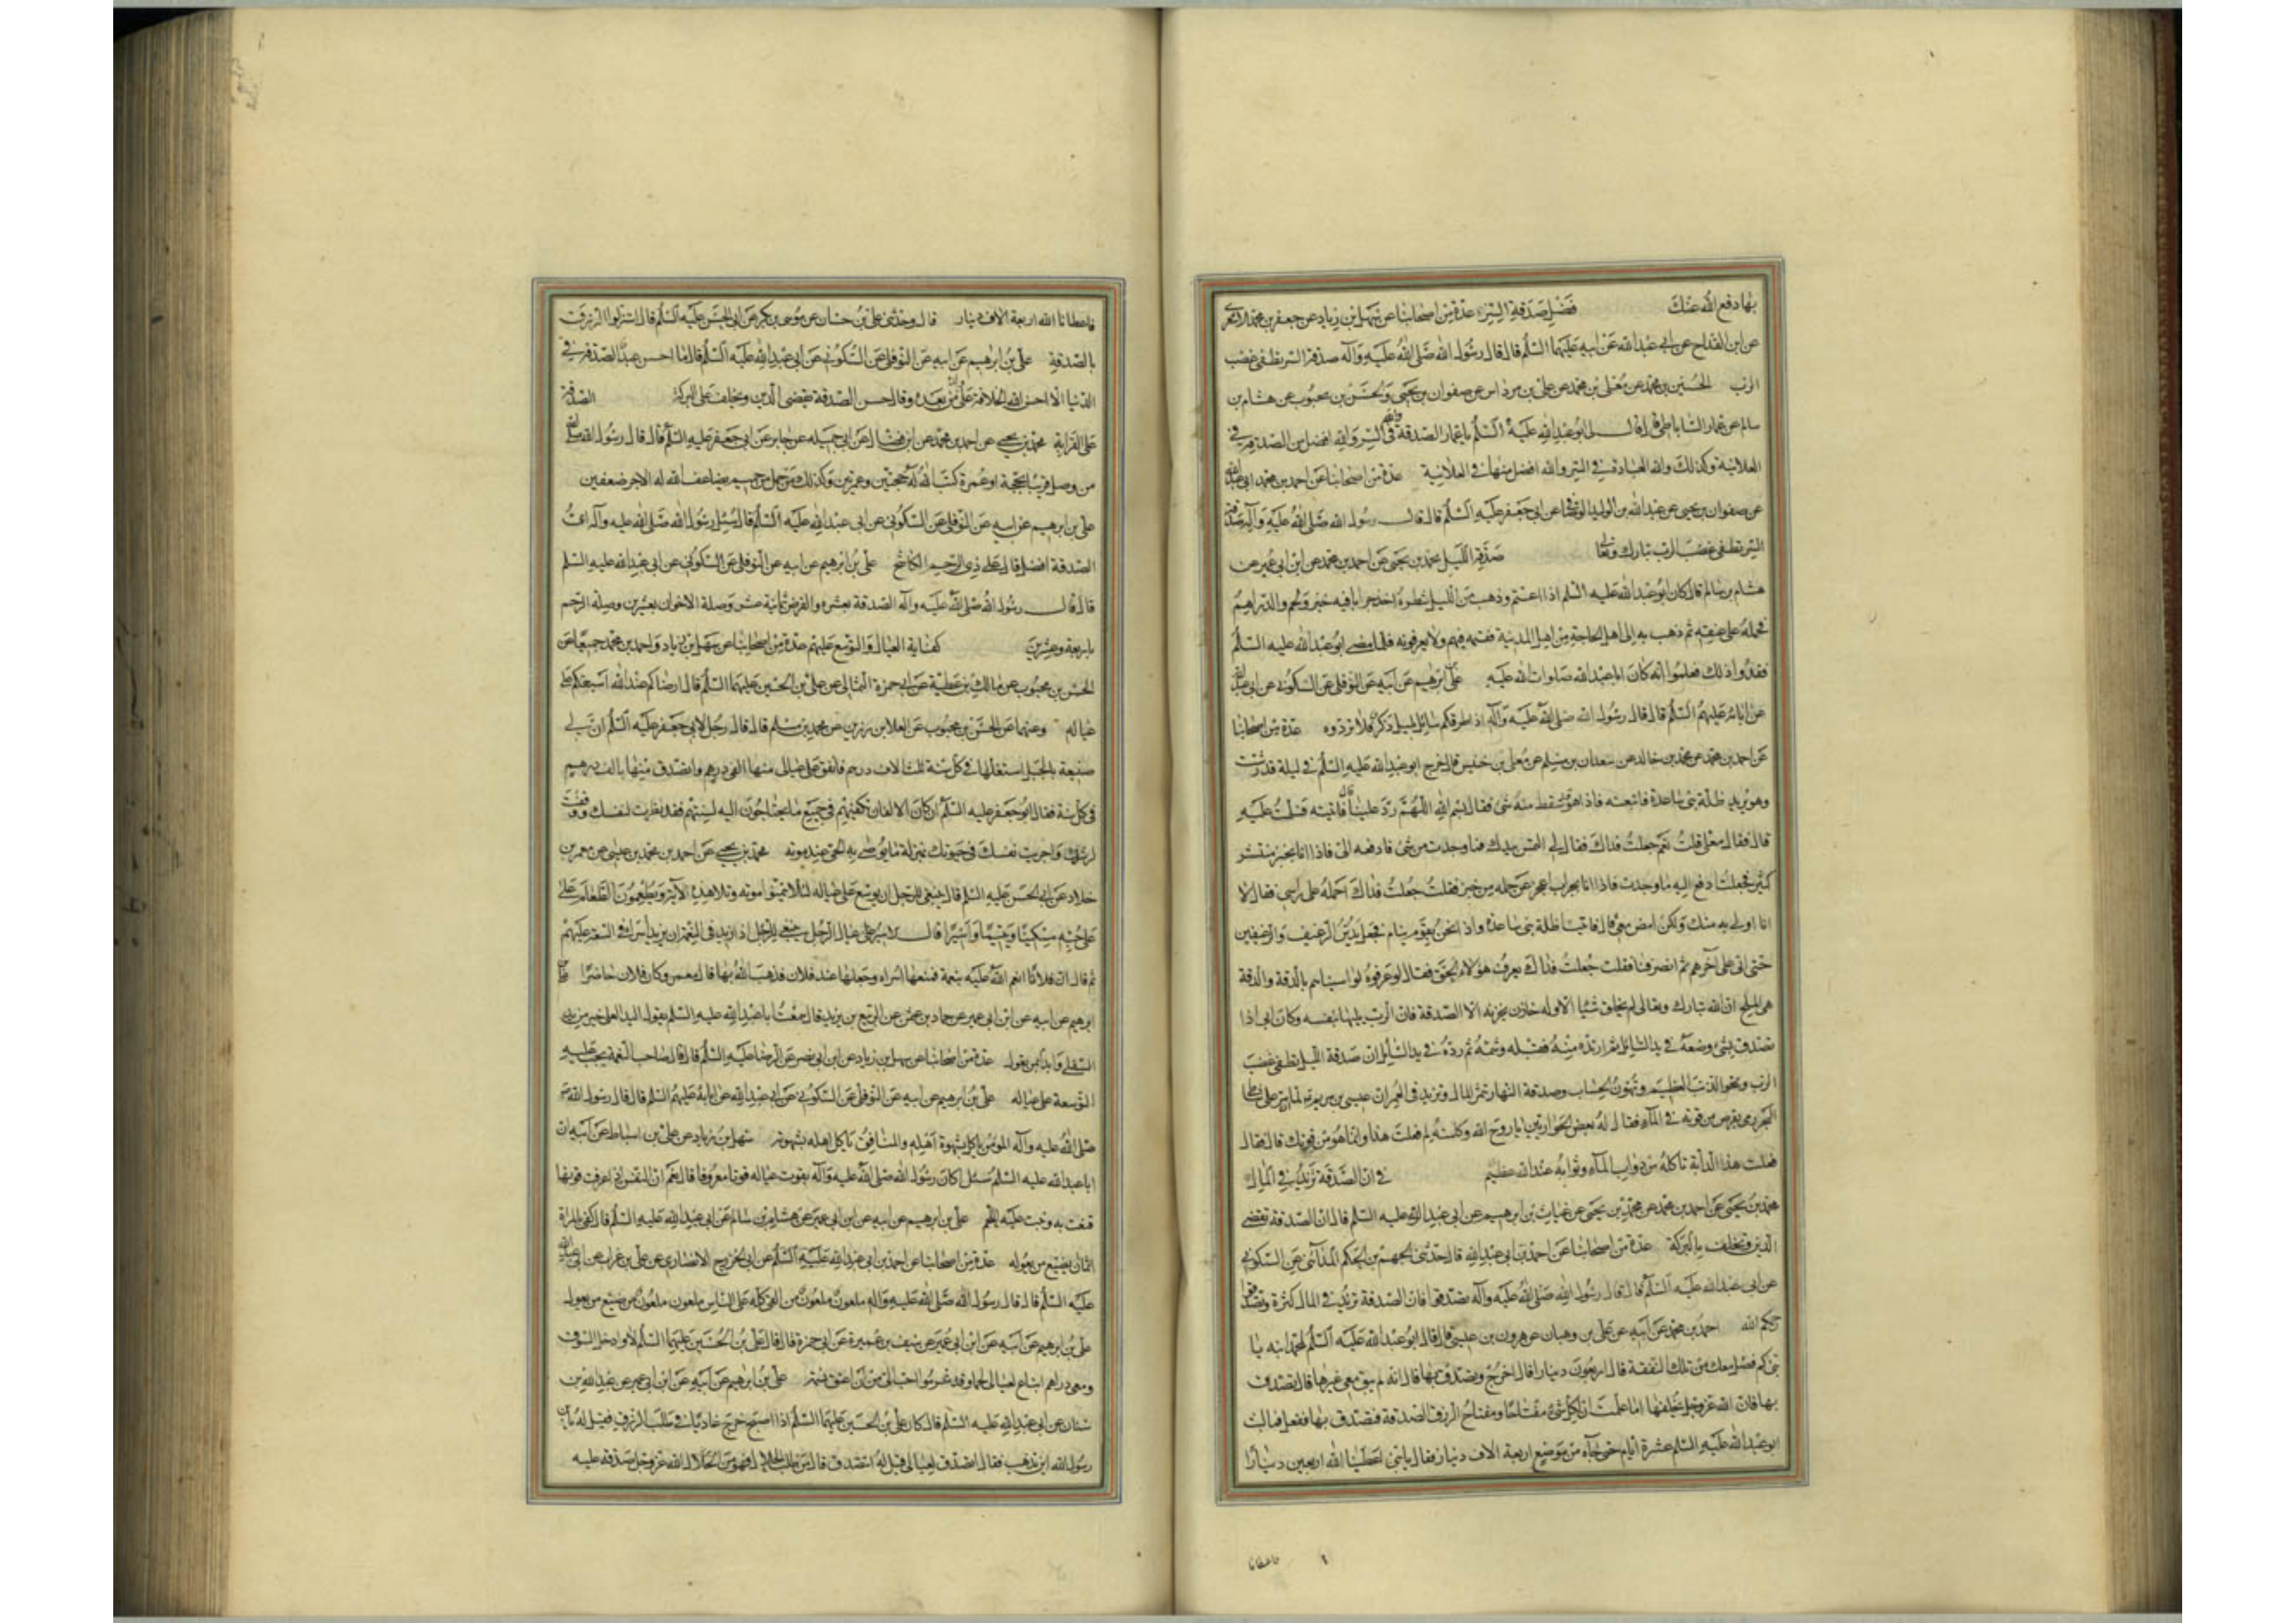 بها دفع الله عنك فضل صدقة السر عدة من اصحابنا عن سهل بن زياد عن جعفر بن محمد الاشعرى
عن ابن القداح عن ابى عبد الله عن ابيه عليهما السلم قال قال رسول الله صلى الله عليه وآله صدقة السر تطفى غضب
الرب الحسين بن محمد عن معلى بن محمد عن على بن مرداس عن صفوان بن يحيى والحسن بن محبوب عن هشام بن
سالم عن عمار الساباطى قال قال لى ابو عبد الله عليه السلم يا عمار الصدقة والله فى السر والله افضل من الصدقة فى
العلانية وكذلك والله العبادة فى السر والله افضل منها فى العلانية عدة من اصحابنا عن احمد بن محمد ابى عبد الله
عن صفوان بن يحيى عن عبد الله بن الوليد الوصافى عن ابى جعفر عليه السلم قال قال رسول الله صلى الله عليه وآله صدقة
السر تطفى غضب الرب تبارك وتعالى صدقة الليل محمد بن يحيى عن احمد بن محمد عن ابن ابى عمير عن
هشام بن سالم قال كان ابو عبد الله عليه السلم اذا اعتم وذهب من الليل شطره اخذ جرابا فيه خبز ولحم والدراهم
فحمله على عنقه ثم ذهب به الى اهل الحاجة من اهل المدينة فقسمه فيهم ولا يعرفونه فلما مضى ابو عبد الله عليه السلم
فقدوا ذلك فعلموا انه كان ابا عبد الله صلوات الله عليه على بن ابرهيم عن ابيه عن النوفلى عن السكونى عن ابى عبد الله
عن ابائه عليهم السلم قال قال رسول الله صلى الله عليه وآله اذا طرقكم سائل بليل ذكر فلا تردوه عدة من اصحابنا
عن احمد بن محمد عن محمد بن خالد عن سعدان بن مسلم عن معلى بن خنيس قال خرج ابو عبد الله عليه السلم فى ليلة قد رشت
وهو يريد ظلة بنى ساعدة فاتبعته فاذا هو قد سقط منه شئ فقال بسم الله اللهم رد علينا قال فاتيته فسلمت عليه
قال فقال معلى قلت نعم جعلت فداك فقال لى التمس بيدك فما وجدت من شئ فادفعه الى فاذا انا بخبز منتشر
كثير فجعلت ادفع اليه ما وجدت فاذا انا بجراب اعجز عن حمله من خبز فقلت جعلت فداك احمله على راسى فقال لا
انا اولى به منك ولكن امض معى قال فاتينا ظلة بنى ساعدة واذا نحن بقوم نيام فجعل يدس الرغيف والرغيفين
حتى اتى على آخرهم ثم انصرفنا فقلت جعلت فداك يعرف هؤلاء الحق فقال لو عرفوه لواسيناهم بالدقة والدقة
هى الملح ان الله تبارك وتعالى لم يخلق شئا الا وله خازن يخزنه الا الصدقة فان الرب يليها بنفسه وكان ابى اذا
تصدق بشئ وضعه فى يد السائل ثم ارتده منه فقبله وشمه ثم رده فى يد السائل ان صدقة الليل تطفى غضب
الرب وتمحو الذنب العظيم وتهون الحساب وصدقة النهار تثمر المال وتزيد فى العمر ان عيسى بن مريم لما ان مر على شاطئ
البحر رمى بقرص من قوته فى الماء فقال له بعض الحواريين يا روح الله وكلمته لم فعلت هذا وانما هو من قوتك قال فقال
فعلت هذا لدابة تاكله من دواب الماء وثوابه عند الله عظيم فى ان الصدقة تزيد فى المال
محمد بن يحيى عن احمد بن محمد عن محمد بن يحيى عن غياث بن ابرهيم عن ابى عبد الله عليه السلم قال ان الصدقة تقضى
الدين وتخلف بالبركة عدة من اصحابنا عن احمد بن ابى عبد الله قال حدثنى الجهم بن الحكم المدائنى عن السكونى
عن ابى عبد الله عليه السلم قال قال رسول الله صلى الله عليه وآله تصدقوا فان الصدقة تزيد فى المال كثرة وتصدقوا
رحمكم الله احمد بن محمد عن ابيه عن على بن وهبان عن هرون بن عيسى قال قال ابو عبد الله عليه السلم لمحمد ابنه يا
بنى كم فضل معك من تلك النفقة قال اربعون دينارا قال اخرج وتصدق بها قال انه لم يبق معى غيرها قال تصدق
بها فان الله عز وجل يخلفها اما علمت ان لكل شئ مفتاحا ومفتاح الرزق الصدقة فتصدق بها ففعل فما لبث
ابو عبد الله عليه السلم عشرة ايام حتى جاءه من موضع اربعة الاف دينار فقال يا بنى اعطينا الله اربعين دينارا
فاعطانا
فاعطانا الله اربعة الاف دينار قال وحدثنى على بن حسان عن موسى بن بكر عن ابى الحسن عليه السلم قال استنزلوا الرزق
بالصدقة على بن ابرهيم عن ابيه عن النوفلى عن السكونى عن ابى عبد الله عليه السلم قال ما احسن عبد الصدقة فى
الدنيا الا احسن الله الخلافة على ولده من بعده وقال حسن الصدقة يقضى الدين ويخلف على البركة الصدقة
على القرابة محمد بن يحيى عن احمد بن محمد عن ابن فضال عن ابى جميله عن جابر عن ابى جعفر عليه السلم قال قال رسول الله صلى الله
من وصل قريبا بحجة او عمرة كتب الله له حجتين وعمرتين وكذلك من حمل عن حميم يضاعف الله له الاجر ضعفين
على بن ابرهيم عن ابيه عن النوفلى عن السكونى عن ابى عبد الله عليه السلم قال سئل رسول الله صلى الله عليه وآله اى
الصدقة افضل قال على ذى الرحم الكاشح على بن ابرهيم عن ابيه عن النوفلى عن السكونى عن ابى عبد الله عليه السلم
قال قال رسول الله صلى الله عليه وآله الصدقة بعشرة والقرض ثمانية عشر وصلة الاخوان بعشرين وصلة الرحم
باربعة وعشرين كفاية العيال والتوسع عليهم عدة من اصحابنا عن سهل بن زياد واحمد بن محمد جميعا عن
الحسن بن محبوب عن مالك بن عطية عن ابى حمزة الثمالى عن على بن الحسين عليهما السلم قال ارضاكم عند الله اسبغكم على
عياله وعنهما عن الحسن بن محبوب عن العلا بن رزين عن محمد بن مسلم قال قال رجل لابى جعفر عليه السلم ان لى
ضيعة بالجبل استغلها فى كل سنة ثلث الاف درهم فانفق على عيالى منها الفى درهم واتصدق منها بالف درهم
فى كل سنة فقال ابو جعفر عليه السلم ان كان الالفان تكفيهم فى جميع ما يحتاجون اليه لسنتهم فقد نظرت لنفسك ووفقت
لرشدك واجريت نفسك فى حيوتك بمنزلة ما يوصى به الحى عند موته محمد بن يحيى عن احمد بن محمد بن عيسى عن معمر بن
خلاد عن ابى الحسن عليه السلم قال ينبغى للرجل ان يوسع على عياله لئلا يتمنوا موته وتلا هذه الآية ويطعمون الطعام على
على حبه مسكينا ويتيما واسيرا قال الاسير عيال الرجل ينبغى للرجل اذا زيد فى النعمة ان يزيد اسراه فى السعة عليهم
ثم قال ان فلانا انعم الله عليه بنعمة فمنعها اسراه وجعلها عند فلان فذهب الله بها قال معمر وكان فلان حاضرا على بن
ابرهيم عن ابيه عن ابن ابى عمير عن حماد بن عثمن عن الربيع بن يزيد قال سمعت ابا عبد الله عليه السلم يقول اليد العليا خير من اليد
السفلى وابدأ بمن تعول عدة من اصحابنا عن سهل بن زياد عن ابن ابى نصر عن الرضا عليه السلم قال قال صاحب النعمة يجب عليه
التوسعة على عياله على بن ابرهيم عن ابيه عن النوفلى عن السكونى عن ابى عبد الله عن ابائه عليهم السلم قال قال رسول الله
صلى الله عليه وآله المؤمن ياكل بشهوة اهله والمنافق ياكل اهله بشهوته سهل بن زياد عن على بن اسباط عن ابيه ان
ابا عبد الله عليه السلم سئل اكان رسول الله صلى الله عليه وآله يقوت عياله قوتا معروفا قال نعم ان النفس اذا عرفت قوتها
قنعت به ونبت عليه اللحم على بن ابرهيم عن ابيه عن ابن ابى عمير عن هشام بن سالم عن ابى عبد الله عليه السلم قال كفى بالمرء
اثما ان يضيع من يعوله عدة من اصحابنا عن احمد بن ابى عبد الله عليه السلم عن ابى الخزرج الانصارى عن على بن غراب عن ابى عبد الله
عليه السلم قال قال رسول الله صلى الله عليه وآله ملعون ملعون من القى كله على الناس ملعون ملعون من ضيع من يعول
على بن ابرهيم عن ابيه عن ابن ابى عمير عن سيف بن عميرة عن ابى حمزة قال قال على بن الحسين عليهما السلم لان ادخل السوق
ومعى دراهم ابتاع لعيالى لحما وقد قرموا احب الى من ان اعتق نسمة على بن ابرهيم عن ابيه عن ابن ابى عمير عن عبد الله بن
سنان عن ابى عبد الله عليه السلم قال كان على بن الحسين عليهما السلم اذا اصبح خرج غاديا فى طلب الرزق فقيل له يا بن
رسول الله اين تذهب فقال اتصدق لعيالى قيل له اتتصدق قال من طلب الحلال فهو من الله عز وجل صدقة عليه